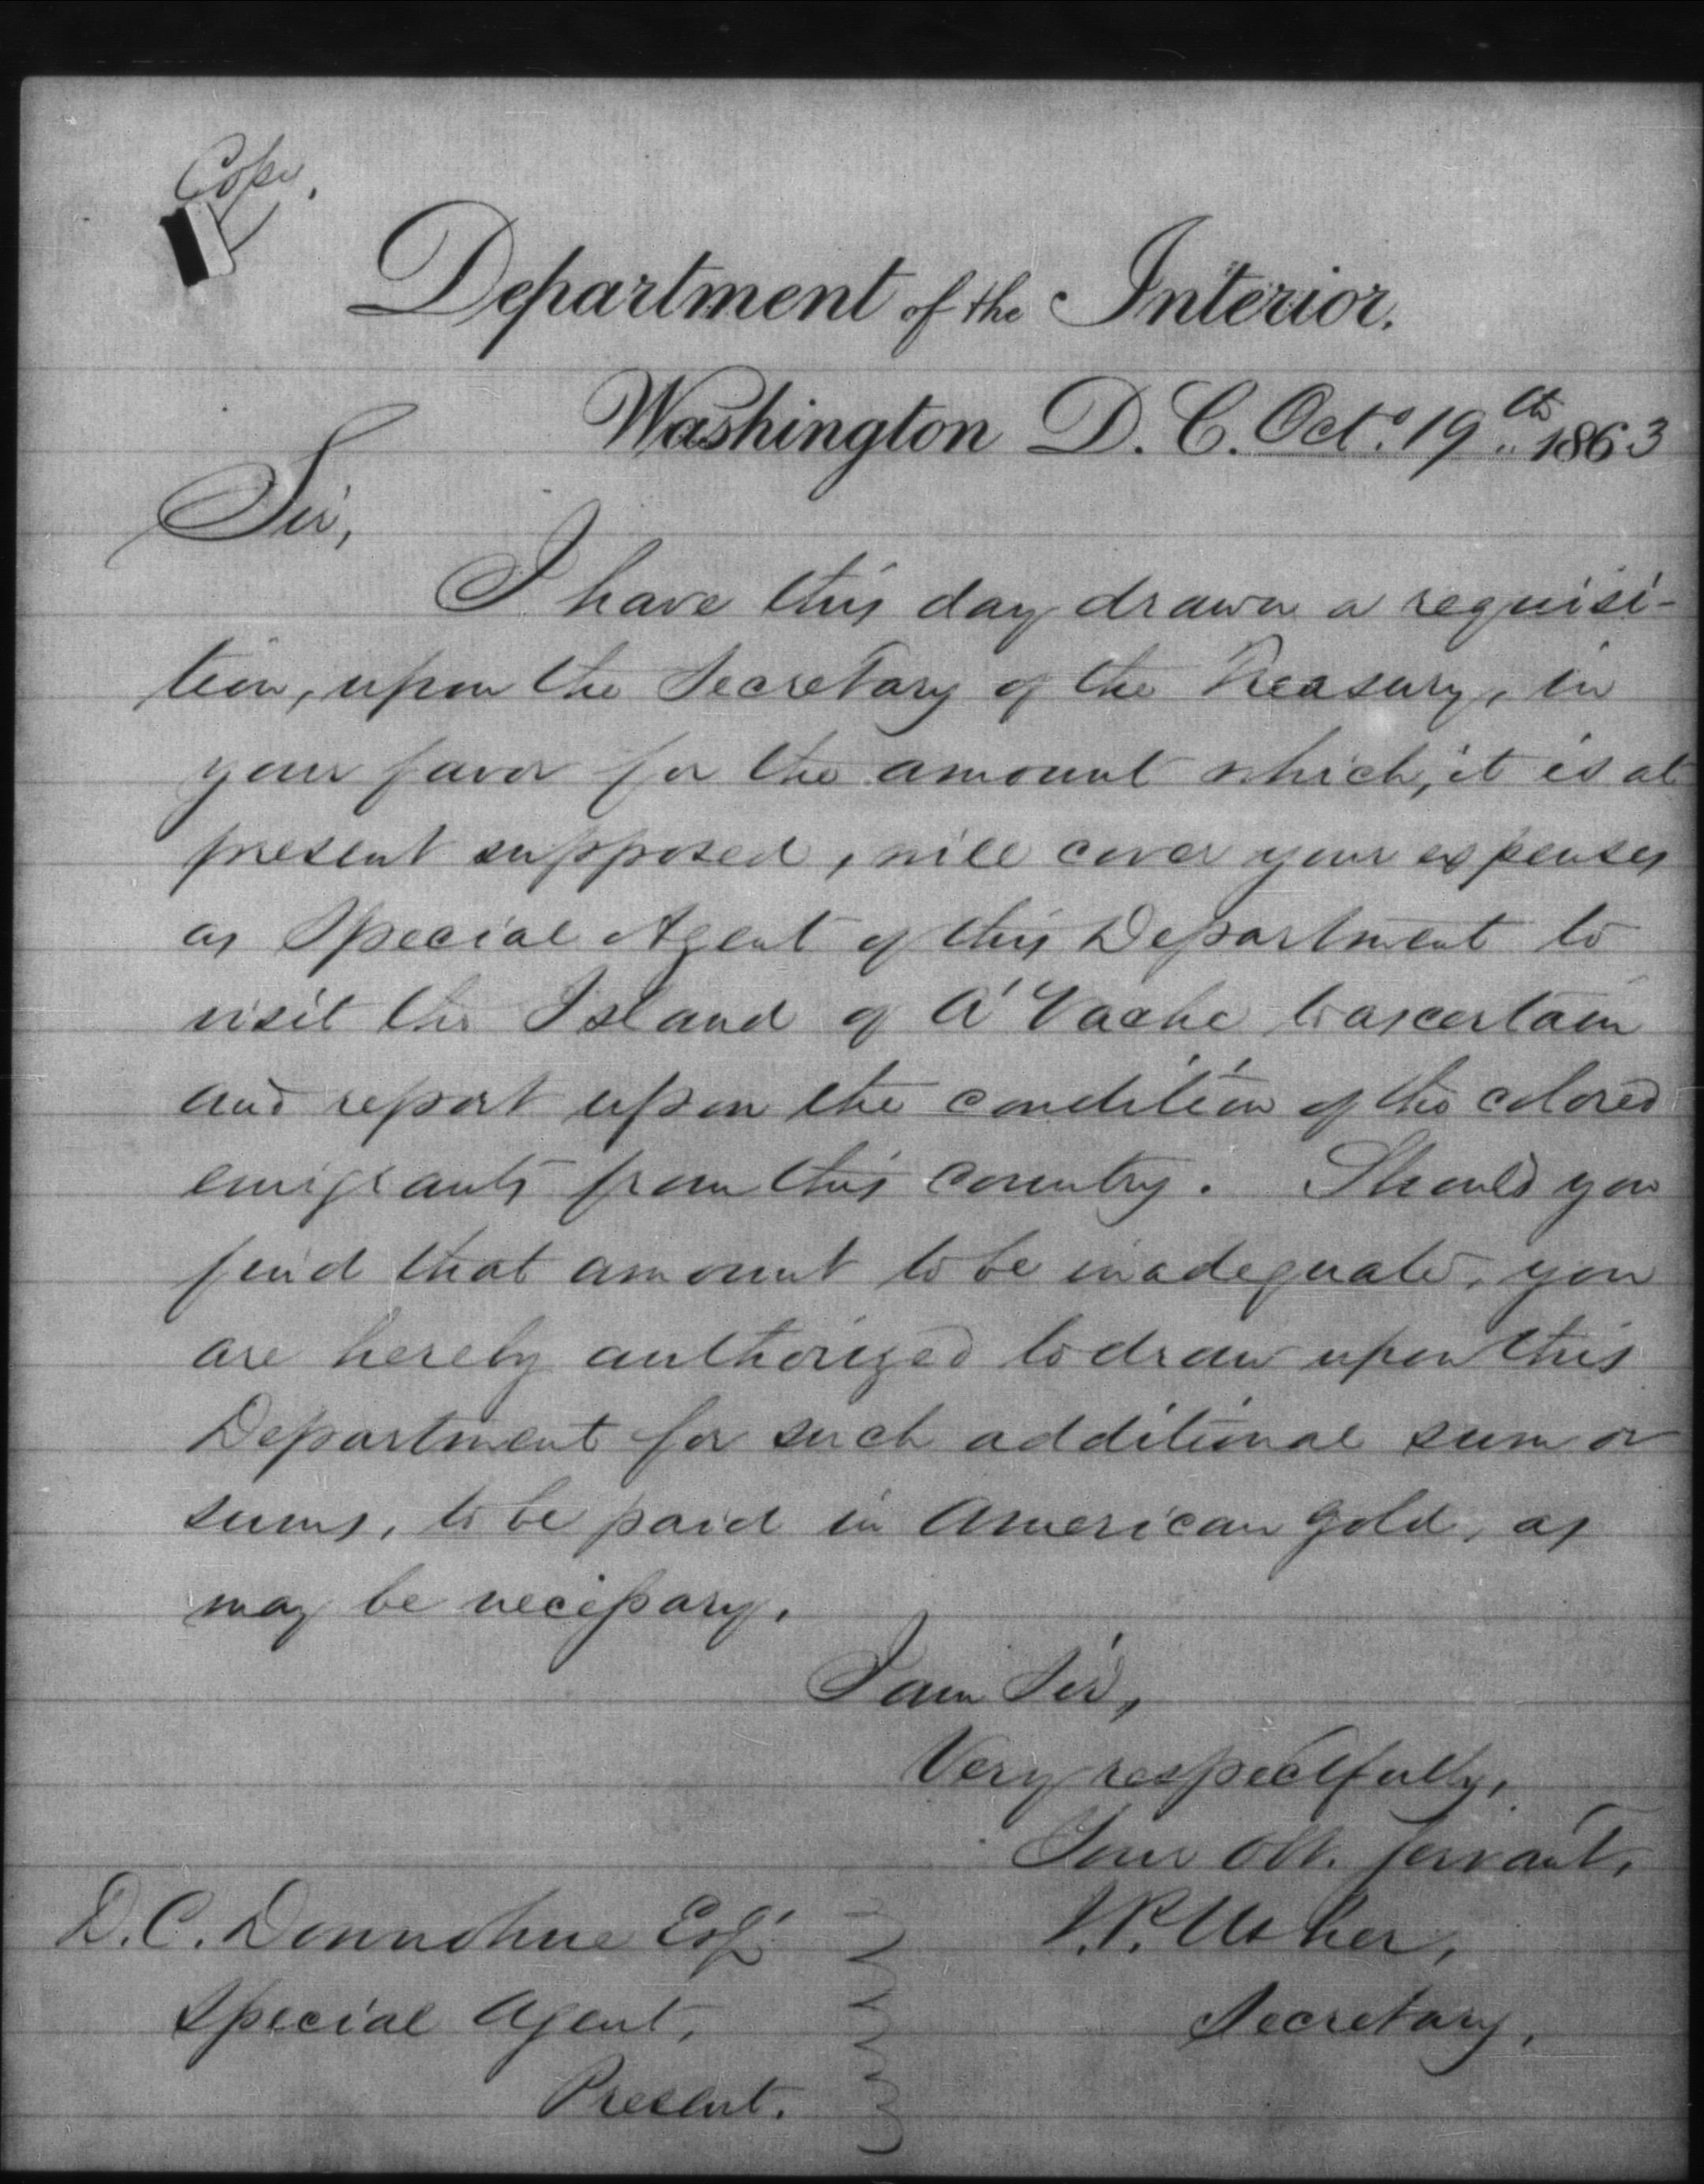 Copy.
Department of the Interior.
Washington D. C. Oct. 19th 1863
Sir,
I have this day drawn a requisi-
tion, upon the Secretary of the Treasury, in
your favor for the amount which, it is at
present supposed, will cover your expenses
as Special Agent of this Department to
visit the Island of A'Vache to ascertain
and report upon the condition of the colored
emigrants from this country. Should you
find that amount to be inadequate, you
are hereby authorized to draw upon this
Department for such additional sum or
sums, to be paid in American gold, as
may be necessary.
I am Sir,
Very respectfully,
Your Obt. Servant,
J.P. Usher,
Secretary.
D. C. Donnohue Esq.
Special Agent,
Present.